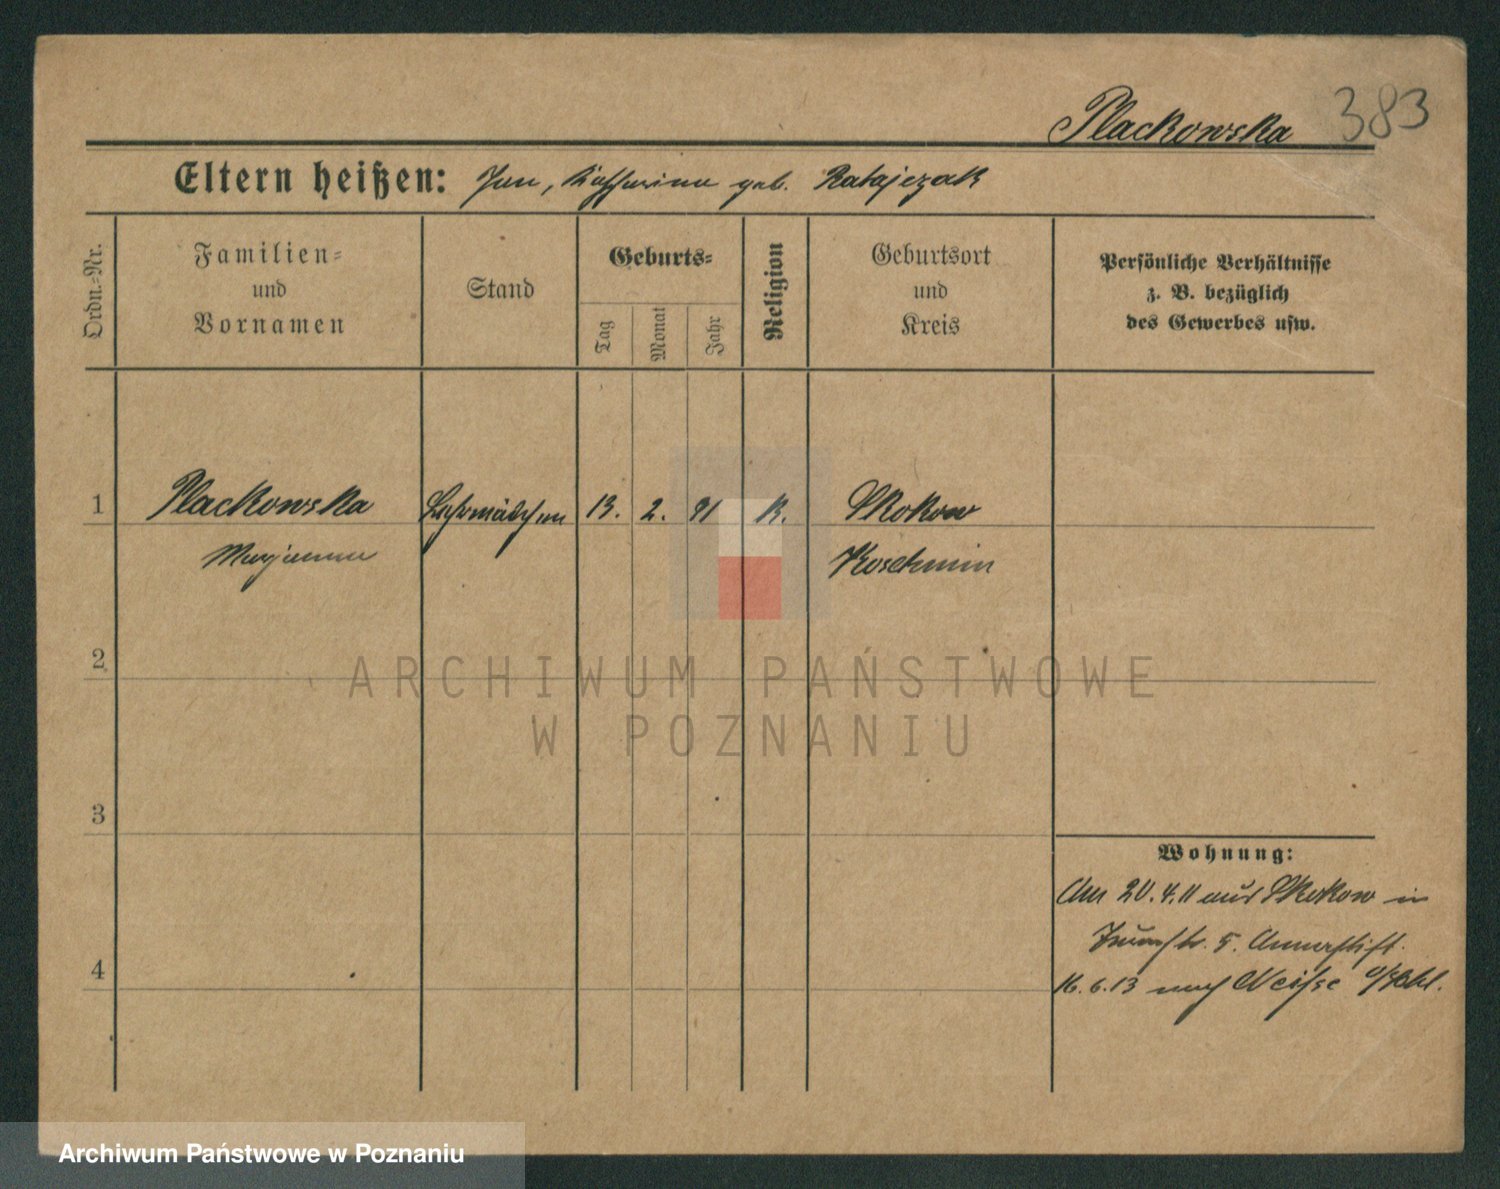 Plackowska 383
Eltern heißen: Jan, Katharina geb. Ratajczak
Ordn.-Nr.
Familien-
und
Vornamen
Stand
Geburts-
Tag
Monat
Jahr
Religion
Geburtsort
und
Kreis
Persönliche Verhältnisse
z. B. bezüglich
des Gewerbes usw.
1 Plackowska Lehrmädchen 13. 2. 91 k. Skokow
Marjanna Koschmin
2
3
4
Wohnung:
Am 20.4.11 aus Skokow in
5. Annastift.
16.6.13 nach Neisse O/Schl.
ARCHIWUM PAŃSTWOWE
W POZNANIU
Archiwum Państwowe w Poznaniu